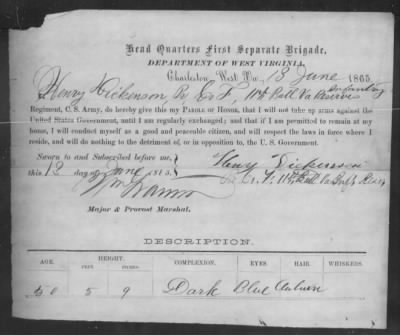 Head Quarters First Separate Brigade,
DEPARTMENT OF WEST VIRGINIA,
Charleston, West Va., 13 June 1865.
Henry Dickenson Co F, Batt Va Reserves Infantry
Regiment, C. S. Army, do hereby give this my PAROLE OF HONOR, that I will not take up arms against the
United States Government, until I am regularly exchanged; and that if I am permitted to remain at my
home, I will conduct myself as a good and peaceable citizen, and will respect the laws in force where I
reside, and will do nothing to the detriment of, or in opposition to, the U. S. Government.
Sworn to and Subscribed before me,
this 13 day of June 1865.
Henry Dickenson
Co F, Batt Va
Major & Provost Marshal.
DESCRIPTION.
AGE. HEIGHT. COMPLEXION. EYES. HAIR. WHISKERS.
FEET. INCHES.
50 5 9 Dark Blue Auburn